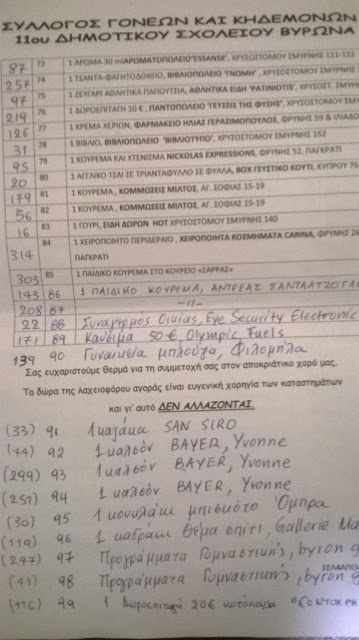 ΣΥΛΛΟΓΟΣ ΓΟΝΕΩΝ ΚΑΙ ΚΗΔΕΜΟΝΩΝ
11ου ΔΗΜΟΤΙΚΟΥ ΣΧΟΛΕΙΟΥ ΒΥΡΩΝΑ
87 73 1 ΑΡΩΜΑ 30 ml ΑΡΩΜΑΤΟΠΩΛΕΙΟ"ESSANSE", ΧΡΥΣΟΣΤΟΜΟΥ ΣΜΥΡΝΗΣ 131-133
257 74 1 ΤΣΑΝΤΑ-ΦΑΓΗΤΟΔΟΧΕΙΟ, ΒΙΒΛΙΟΠΩΛΕΙΟ "ΓΝΩΜΗ", ΧΡΥΣΟΣΤΟΜΟΥ ΣΜΥΡΝΗΣ
97 75 1 ΖΕΥΓΑΡΙ ΑΘΛΗΤΙΚΑ ΠΑΠΟΥΤΣΙΑ, ΑΘΛΗΤΙΚΑ ΕΙΔΗ "PATINIOTIS", ΧΡΥΣΟΣΤ. ΣΜΥΡ
219 76 1 ΔΩΡΟΕΠΙΤΑΓΗ 10 €, ΠΑΝΤΟΠΩΛΕΙΟ "ΓΕΥΣΕΙΣ ΤΗΣ ΦΥΣΗΣ", ΧΡΥΣΟΣΤΟΜΟΥ ΣΜΥΡΝΗΣ
126 77 1 ΚΡΕΜΑ ΧΕΡΙΩΝ, ΦΑΡΜΑΚΕΙΟ ΗΛΙΑΣ ΓΕΡΕΜΤΖΕΣ, ΦΡΥΝΗΣ 59 & ΙΛΙΑΔΟΣ
31 78 1 ΒΙΒΛΙΟ, ΒΙΒΛΙΟΠΩΛΕΙΟ "ΒΙΒΛΙΟΤΥΠΟ", ΧΡΥΣΟΣΤΟΜΟΥ ΣΜΥΡΝΗΣ 152
95 79 1 ΚΟΥΡΕΜΑ ΚΑΙ ΧΤΕΝΙΣΜΑ NICKOLAS EXPRESSIONS, ΦΡΥΝΗΣ 52, ΠΑΓΚΡΑΤΙ
20 80 1 ΑΓΓΛΙΚΟ ΤΣΑΙ ΣΕ ΤΡΙΑΝΤΑΦΥΛΛΟ ΣΕ ΦΥΛΛΑ, BOX ΓΕΥΣΤΙΚΟ ΚΟΥΤΙ, ΚΥΠΡΟΥ 76
179 81 1 ΚΟΥΡΕΜΑ, ΚΟΜΜΩΣΕΙΣ ΜΙΛΤΟΣ, ΑΓ. ΣΟΦΙΑΣ 15-19
56 82 1 ΚΟΥΡΕΜΑ, ΚΟΜΜΩΣΕΙΣ ΜΙΛΤΟΣ, ΑΓ. ΣΟΦΙΑΣ 15-19
16 83 1 ΓΟΥΡΙ, ΕΙΔΗ ΔΩΡΩΝ HOT ΧΡΥΣΟΣΤΟΜΟΥ ΣΜΥΡΝΗΣ 140
314 84 1 ΧΕΙΡΟΠΟΙΗΤΟ ΠΕΡΙΔΕΡΑΙΟ, ΧΕΙΡΟΠΟΙΗΤΑ ΚΟΣΜΗΜΑΤΑ CARINA, ΦΡΥΝΗΣ 26
ΠΑΓΚΡΑΤΙ
303 85 1 ΠΑΙΔΙΚΟ ΚΟΥΡΕΜΑ ΣΤΟ ΚΟΥΡΕΙΟ «ΣΑΡΡΑΣ»
143 86 1 ΠΑΙΔΙΚΟ ΚΟΥΡΕΜΑ, ΑΝΤΡΕΑΣ ΣΑΝΤΑΛΤΖΟΓΛ
208 87 -//-
22 88 Συναγερμός Οικίας, Eye Security Electronic
171 89 Καύσιμα 50€, Olympic Fuels
139 90 Γυναικεία μπλούζα, Φιλομήλα
Σας ευχαριστούμε θερμά για τη συμμετοχή σας στον αποκριάτικο χορό μας.
Τα δώρα της λαχειοφόρου αγοράς είναι ευγενική χορηγία των καταστημάτων
και γι' αυτό ΔΕΝ ΑΛΛΑΖΟΝΤΑΙ.
(33) 91 1 καζάκα SAN SIRO
(44) 92 1 καλσόν BAYER, Yvonne
(299) 93 1 καλσόν BAYER, Yvonne
(251) 94 1 καλσόν BAYER, Yvonne
(30) 95 1 κουλάκι μπισκότο Όμπρα
(119) 96 1 καδράκι θέμα σπίτι, Gallerie Ma
(247) 97 Προγράμματα Γυμναστικής, byron g
(41) 98 Προγράμματα Γυμναστικής, byron g
(116) 99 1 Δωροεπιταγή 20€ κοτόπουλα